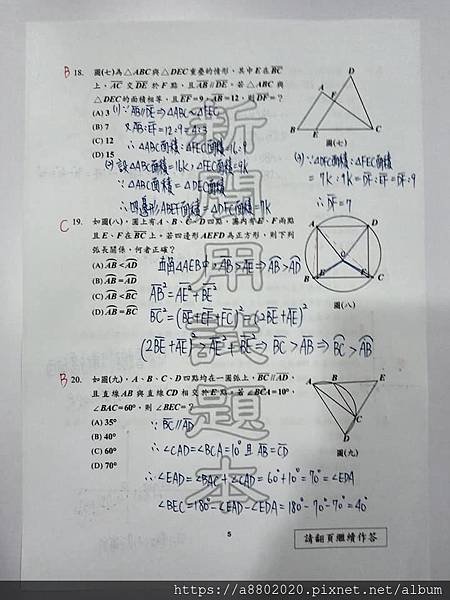 B 18. 圖(七)為△ABC與△DEC重疊的情形，其中E在BC
上，AC交DE於F點，且AB // DE。若△ABC與
△DEC的面積相等，且EF=9，AB=12，則DF=？
(A) 3
(B) 7
(C) 12
(D) 15
(1) ∵ AB // DE ⇒ △ABC ~ △FEC
又AB：EF = 12：9 = 4：3
∴ △ABC面積：△FEC面積 = 16：9
(2) 設△ABC面積 = 16K，△FEC面積 = 9K
∵ △ABC面積 = △DEC面積
∴ 四邊形ABEF面積 = △DFC面積 = 7K
A
D
F
B
E
C
圖(七)
(3) ∵ △DFC面積：△FEC面積
= 7K：9K = DF：EF = DF：9
∴ DF = 7
C 19. 如圖(八)，圓上有A、B、C、D四點，圓內有E、F兩點
且E、F在BC上。若四邊形AEFD為正方形，則下列
弧長關係，何者正確？
(A) AB < AD
(B) AB = AD
(C) AB < BC
(D) AB = BC
直角△AEB中，AB > AE ⇒ AB > AD
AB² = AE² + BE²
BC² = (BE+EF+FC)² = (2BE+AE)²
(2BE+AE)² > AE² + BE² ⇒ BC > AB ⇒ BC > AB
A
D
O
B
E
F
C
圖(八)
B 20. 如圖(九)，A、B、C、D四點均在一圓弧上，BC // AD，
且直線AB與直線CD相交於E點。若∠BCA=10°，
∠BAC=60°，則∠BEC=？
(A) 35°
(B) 40°
(C) 60°
(D) 70°
∵ BC // AD
∴ ∠CAD = ∠BCA = 10° 且 AB = CD
∴ ∠EAD = ∠BAC + ∠CAD = 60° + 10° = 70° = ∠EDA
∠BEC = 180° - ∠EAD - ∠EDA = 180° - 70° - 70° = 40°
A
B
E
C
D
圖(九)
新開用試題本
5
請翻頁繼續作答
https://a8802020.pixnet.net/album